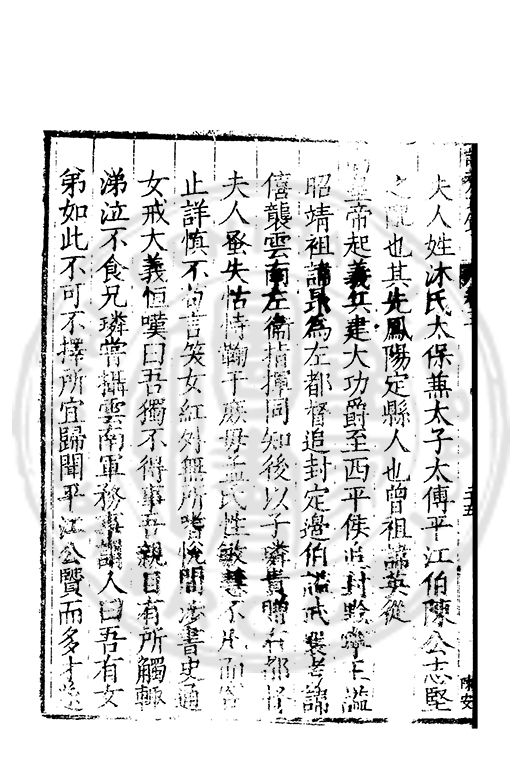 夫人姓沐氏太保兼太子太傅平江伯陳公志堅
之配也其先鳳陽定縣人也曾祖諱英從
皇帝起義兵建大功爵至西平侯追封黔寧王謚
昭靖祖諱昂為左都督追封定邊伯謚武襄考諱
僖襲雲南左衞指揮同知後以子璘貴贈右都督
夫人蚤失怙恃鞠于庶母孟氏性敏慧不凡而容
止詳慎不苟言笑女紅外無所嗜悅間涉書史通
女戒大義恒嘆曰吾獨不得事吾親目有所觸輒
涕泣不食兄璘嘗攝雲南軍務事謂人曰吾有女
弟如此不可不擇所宜歸聞平江公賢而多才遂